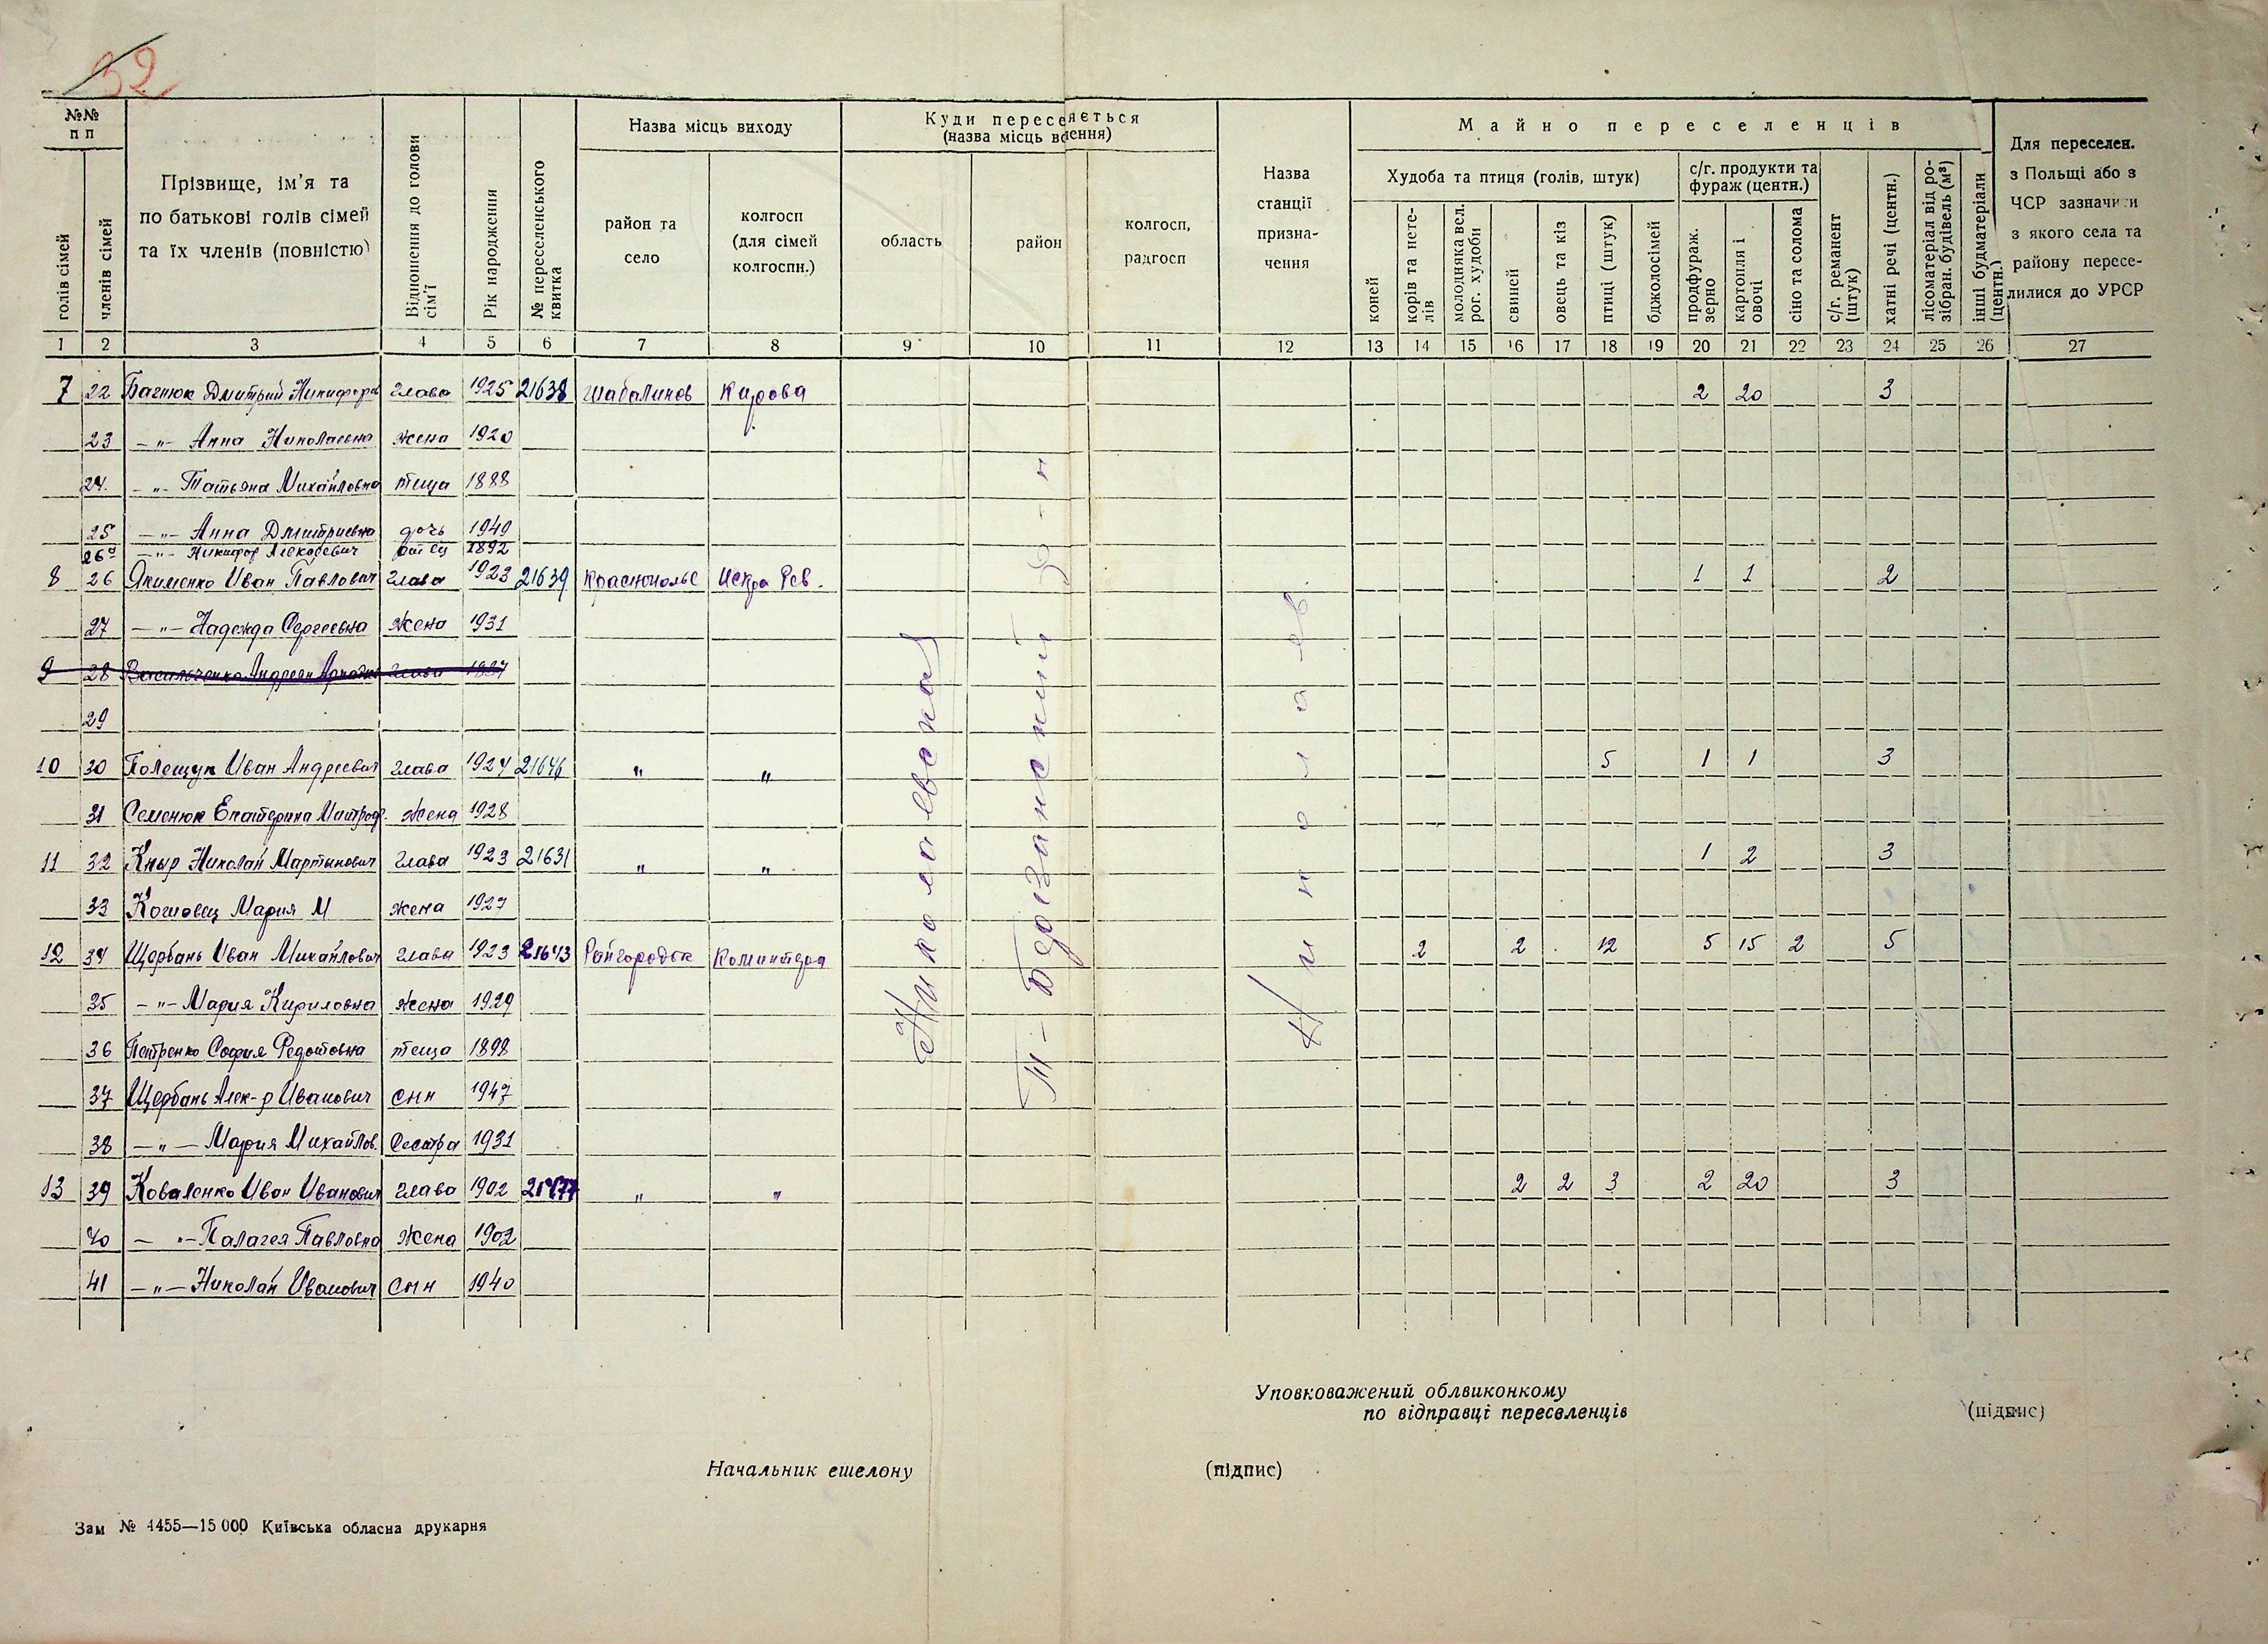 32
№№ п п
голів сімей
членів сімей
Прізвище, ім’я та по батькові голів сімей та їх членів (повністю)
Відношення до голови сім’ї
Рік народження
№ переселенського квитка
Назва місць виходу
район та село
колгосп (для сімей колгоспн.)
Куди переселяється (назва місць вселення)
область
район
колгосп, радгосп
Назва станції призначення
Майно переселенців
Худоба та птиця (голів, штук)
коней
корів та нетелів
молодняка вел. рог. худоби
свиней
овець та кіз
птиці (штук)
бджолосімей
с/г. продукти та фураж (центн.)
продфураж. зерно
картопля і овочі
сіно та солома
с/г. реманент (штук)
хатні речі (центн.)
лісоматеріал від розібран. будівель (м³)
інші будматеріали (центн.)
Для переселен. з Польщі або з ЧСР зазначити з якого села та району переселилися до УРСР
1 2 3 4 5 6 7 8 9 10 11 12 13 14 15 16 17 18 19 20 21 22 23 24 25 26 27
7 22 Багнюк Дмитрий Никифоров глава 1925 21638 Шабалинов Кирова 2 20 3
23 —"— Анна Николаевна жена 1920
24 —"— Татьяна Михайловна теща 1888
25 —"— Анна Дмитриевна дочь 1949
26а —"— Никифор отец 1892
8 26 Якименко Иван Павлович глава 1923 21639 Краснопольс Искра Рев. 1 1 2
27 —"— Надежда Сергеевна жена 1931
9 28 Васильченко Андреян глава
29
10 30 Полещук Иван Андреевич глава 1927 21646 " " 5 1 1 3
31 Семенюк Екатерина Митроф. жена 1928
11 32 Кныр Николай Мартынович глава 1923 21631 " " 1 2 3
33 Кошовец Мария М жена 1927
12 34 Щербань Иван Михайлович глава 1923 21643 Райгородок Коминтерна 2 2 12 5 15 2 5
35 —"— Мария Кириловна жена 1929
36 Петренко София Федотовна теща 1898
37 Щербань Алек-р Иванович сын 1947
38 —"— Мария Михайлов. сестра 1931
13 39 Коваленко Иван Иванович глава 1902 " " 2 2 3 2 20 3
40 —"— Палагея Павловна жена 1902
41 —"— Николай Иванович сын 1940
Николаевская
Т-Березанский р-н
Николаев
Уповноважений облвиконкому
по відправці переселенців
(підпис)
Начальник ешелону
(підпис)
Зам № 4455—15 000 Київська обласна друкарня